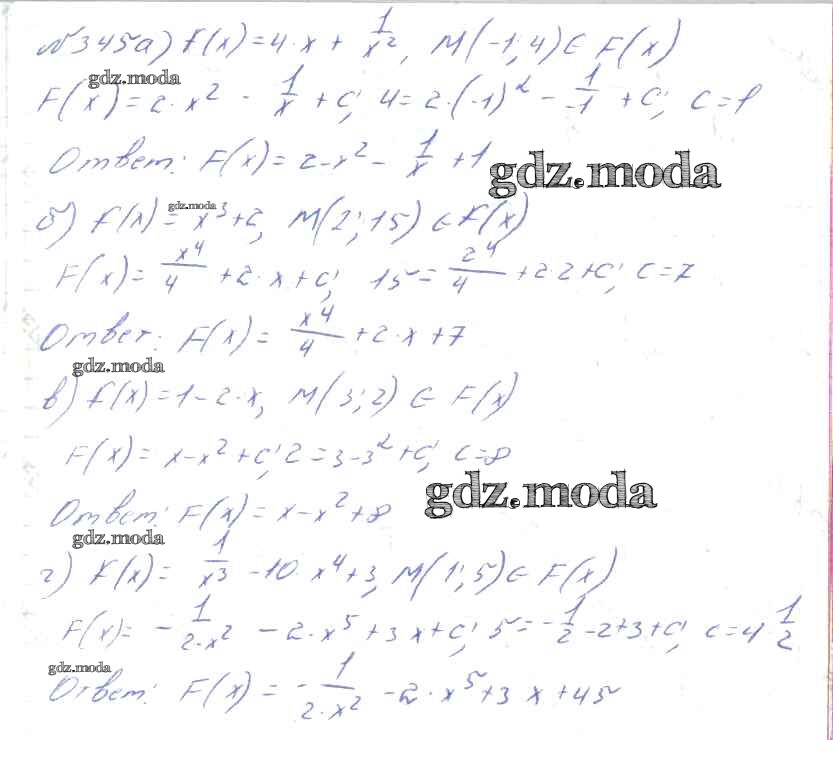 №345а) f(x)=4·x+1/x², M(-1;4)∈F(x)
gdz.moda
F(x)=2·x²-1/x+C; 4=2·(-1)²-1/-1+C; C=1
Ответ: F(x)=2·x²-1/x+1
gdz.moda
gdz.moda
б) f(x)=x³+2, M(2;15)∈F(x)
F(x)=x⁴/4+2·x+C; 15=2⁴/4+2·2+C; C=7
Ответ: F(x)=x⁴/4+2·x+7
gdz.moda
в) f(x)=1-2·x, M(3;2)∈F(x)
F(x)=x-x²+C; 2=3-3²+C; C=8
gdz.moda
Ответ: F(x)=x-x²+8
gdz.moda
г) f(x)=1/x³-10·x⁴+3, M(1;5)∈F(x)
F(x)=-1/2·x²-2·x⁵+3x+C; 5=-1/2-2+3+C; C=4 1/2
gdz.moda
Ответ: F(x)=-1/2·x²-2·x⁵+3x+45